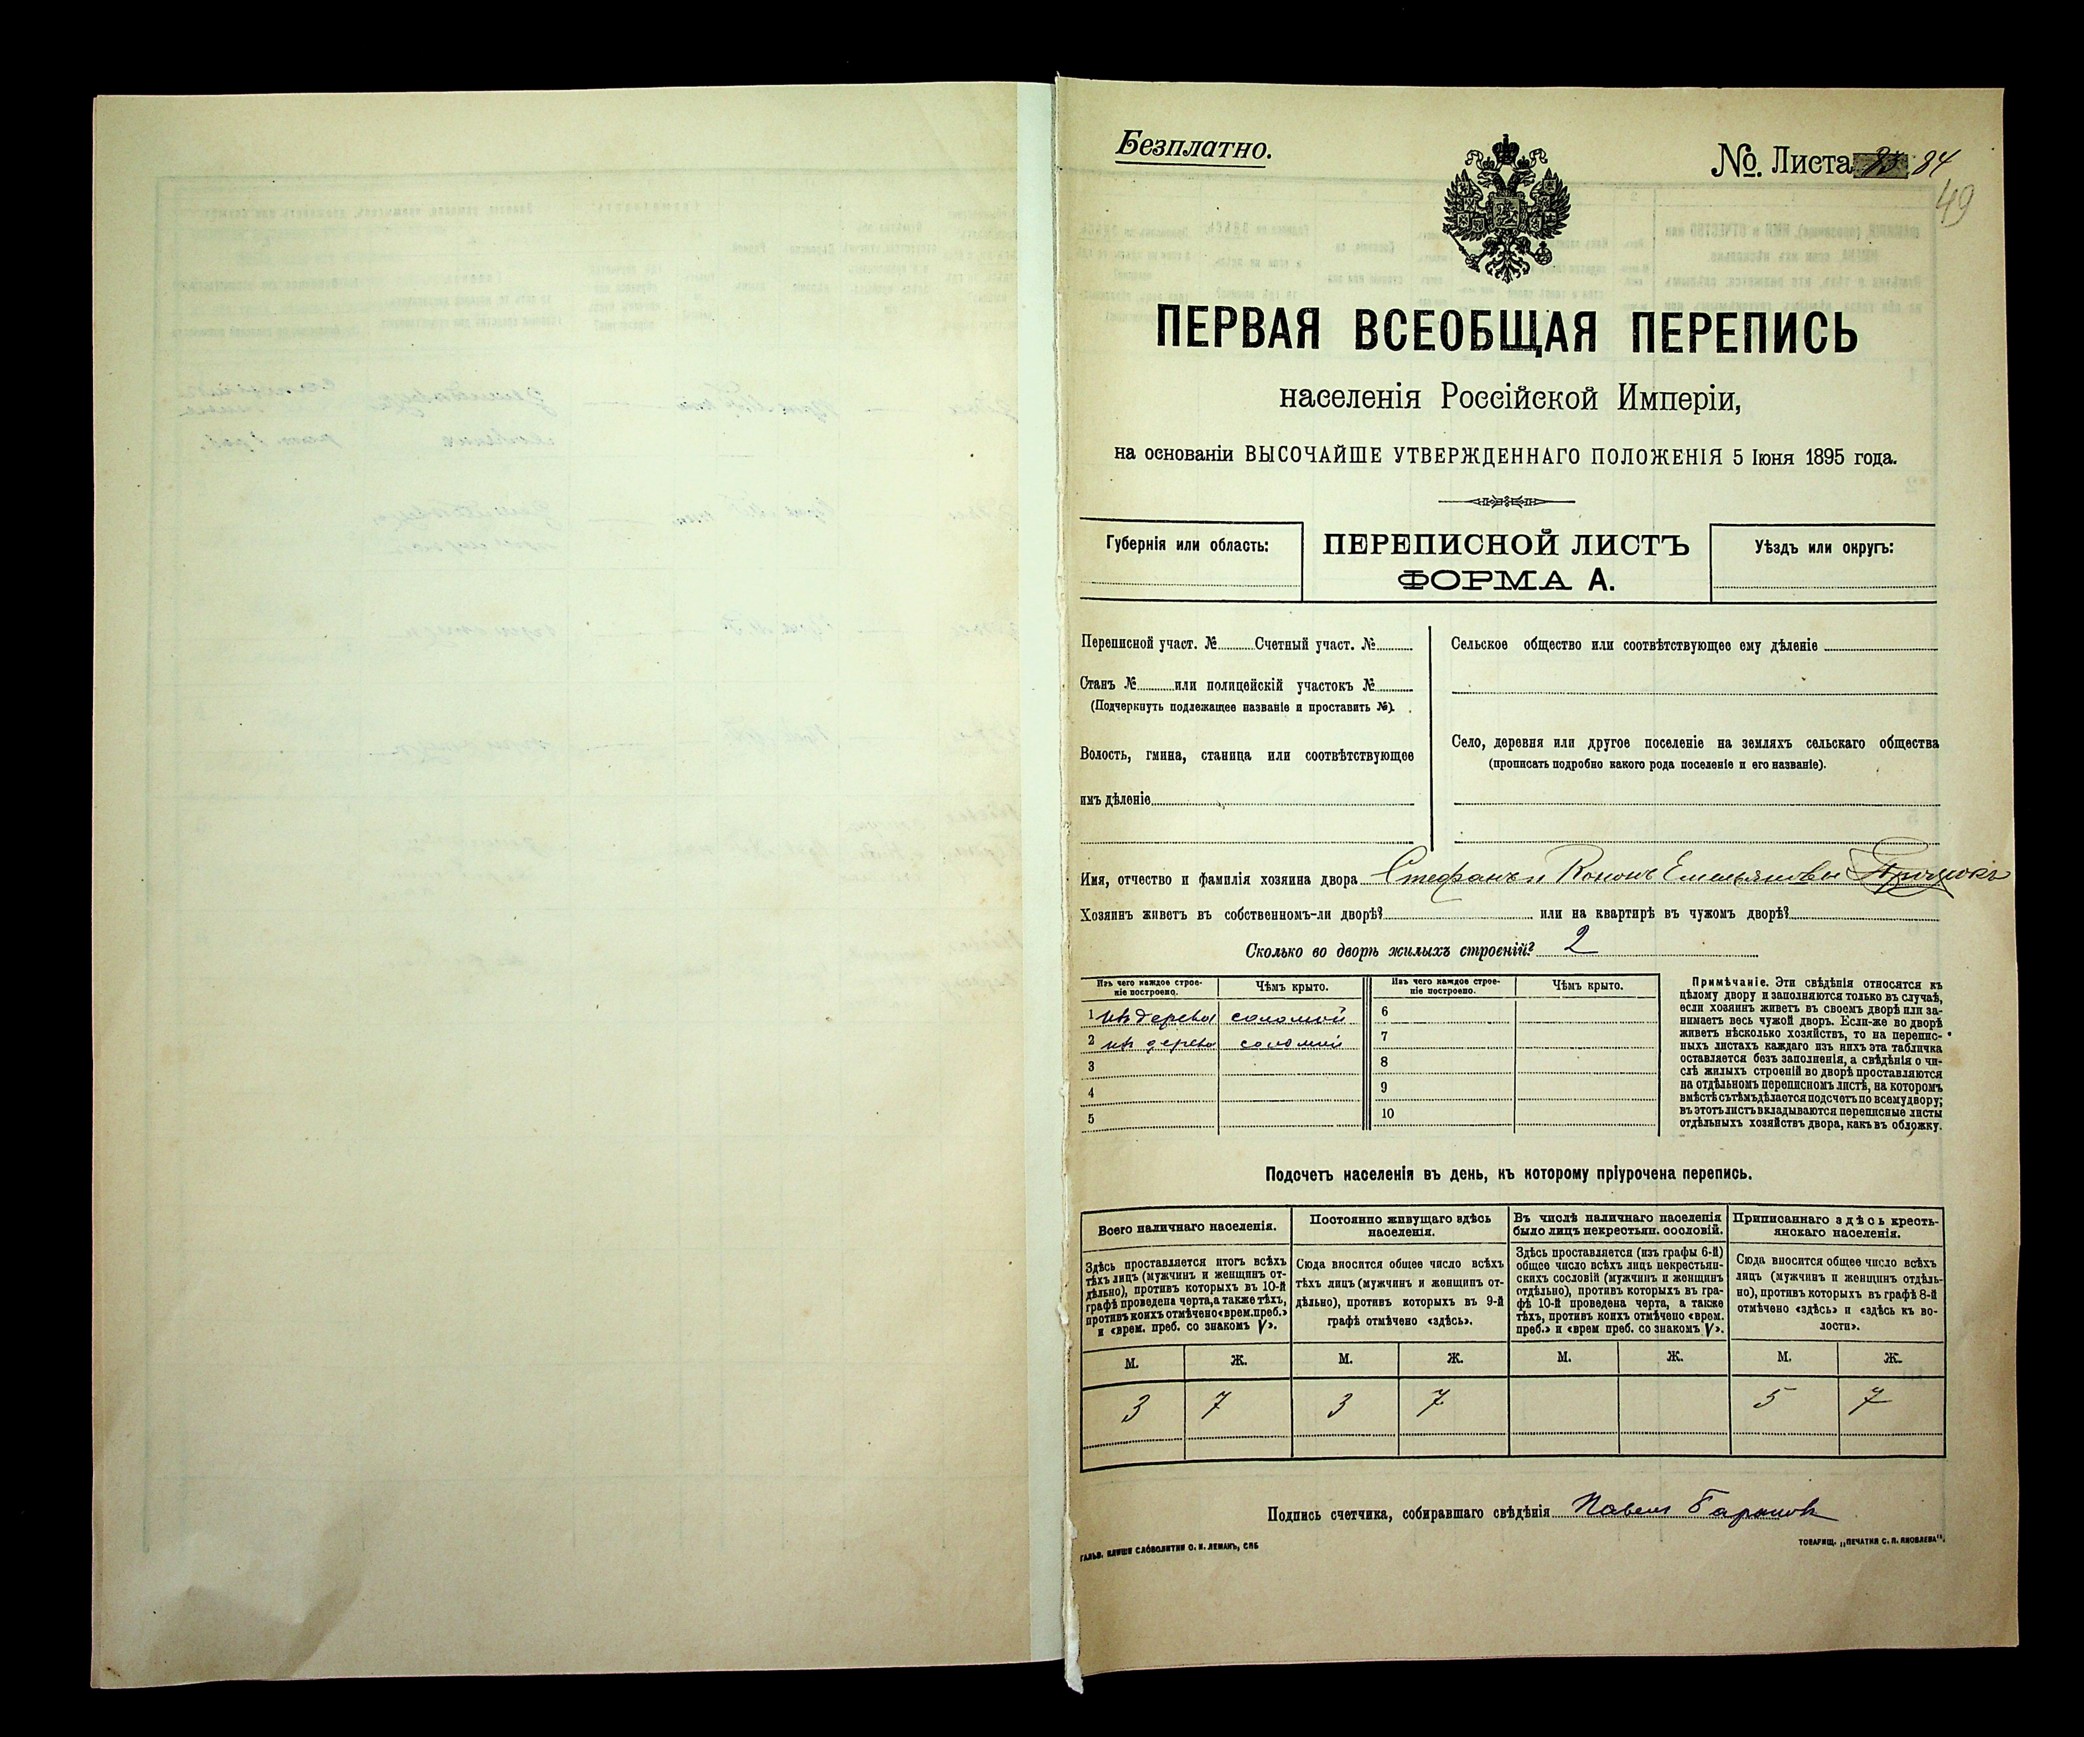 Безплатно.
№. Листа 84
49
ПЕРВАЯ ВСЕОБЩАЯ ПЕРЕПИСЬ
населенія Россійской Имперіи,
на основаніи ВЫСОЧАЙШЕ УТВЕРЖДЕННАГО ПОЛОЖЕНІЯ 5 Іюня 1895 года.
Губернія или область:
ПЕРЕПИСНОЙ ЛИСТЪ
ФОРМА А.
Уѣздъ или округъ:
Переписной участ. № Счетный участ. №
Станъ № или полицейскій участокъ №
(Подчеркнуть подлежащее названіе и проставить №).
Волость, гмина, станица или соотвѣтствующее
имъ дѣленіе
Сельское общество или соотвѣтствующее ему дѣленіе
Село, деревня или другое поселеніе на земляхъ сельскаго общества
(прописать подробно какого рода поселеніе и его названіе).
Имя, отчество и фамилія хозяина двора Стефанъ и Кононъ Емельяновы
Хозяинъ живетъ въ собственномъ-ли дворѣ? или на квартирѣ въ чужомъ дворѣ?
Сколько во дворѣ жилыхъ строеній? 2
Изъ чего каждое строе-
ніе построено.
Чѣмъ крыто.
Изъ чего каждое строе-
ніе построено.
Чѣмъ крыто.
1 изъ дерева соломой 6
2 изъ дерева соломой 7
3 8
4 9
5 10
Примѣчаніе. Эти свѣдѣнія относятся къ
цѣлому двору и заполняются только въ случаѣ,
если хозяинъ живетъ въ своемъ дворѣ или за-
нимаетъ весь чужой дворъ. Если-же во дворѣ
живетъ нѣсколько хозяйствъ, то на перепис-
ныхъ листахъ каждаго изъ нихъ эта табличка
оставляется безъ заполненія, а свѣдѣнія о чи-
слѣ жилыхъ строеній во дворѣ проставляются
на отдѣльномъ переписномъ листѣ, на которомъ
вмѣстѣ съ тѣмъ дѣлается подсчетъ по всему двору;
въ этотъ листъ вкладываются переписные листы
отдѣльныхъ хозяйствъ двора, какъ въ обложку.
Подсчетъ населенія въ день, къ которому пріурочена перепись.
Всего наличнаго населенія.
Здѣсь проставляется итогъ всѣхъ
тѣхъ лицъ (мужчинъ и женщинъ от-
дѣльно), противъ которыхъ въ 10-й
графѣ проведена черта, а также тѣхъ,
противъ коихъ отмѣчено «врем. преб.»
и «врем. преб. со знакомъ V».
Постоянно живущаго здѣсь
населенія.
Сюда вносится общее число всѣхъ
тѣхъ лицъ (мужчинъ и женщинъ от-
дѣльно), противъ которыхъ въ 9-й
графѣ отмѣчено «здѣсь».
Въ числѣ наличнаго населенія
было лицъ некрестьян. сословій.
Здѣсь проставляется (изъ графы 6-й)
общее число всѣхъ лицъ некрестьян-
скихъ сословій (мужчинъ и женщинъ
отдѣльно), противъ которыхъ въ гра-
фѣ 10-й проведена черта, а также
тѣхъ, противъ коихъ отмѣчено «врем.
преб.» и «врем преб. со знакомъ V».
Приписаннаго здѣсь кресть-
янскаго населенія.
Сюда вносится общее число всѣхъ
лицъ (мужчинъ и женщинъ отдѣль-
но), противъ которыхъ въ графѣ 8-й
отмѣчено «здѣсь» и «здѣсь къ во-
лости».
М. Ж. М. Ж. М. Ж. М. Ж.
3 7 3 7 5 7
Подпись счетчика, собиравшаго свѣдѣнія Павелъ
ГАЛЬВ. КЛИШИ СЛОВОЛИТНИ О. И. ЛЕМАНЪ, СПБ
ТОВАРИЩ. „ПЕЧАТНЯ С. П. ЯКОВЛЕВА".